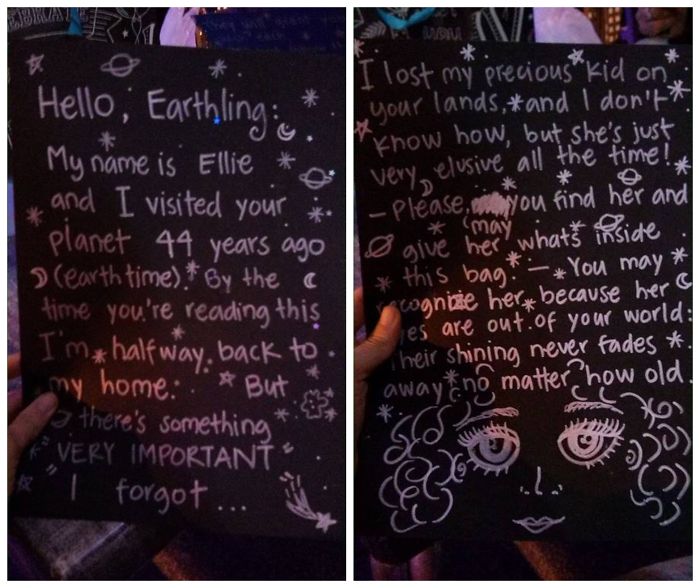 Hello, Earthling:
My name is Ellie
and I visited your
planet 44 years ago
(earth time). By the
time you're reading this
I'm halfway back to
my home. But
there's something
"VERY IMPORTANT"
I forgot...
I lost my precious kid on
your lands, and I don't
know how, but she's just
very elusive all the time!
- Please, you find her and
(may
give her what's inside
this bag. - You may
recognize her because her
eyes are out of your world:
Their shining never fades
away no matter how old.